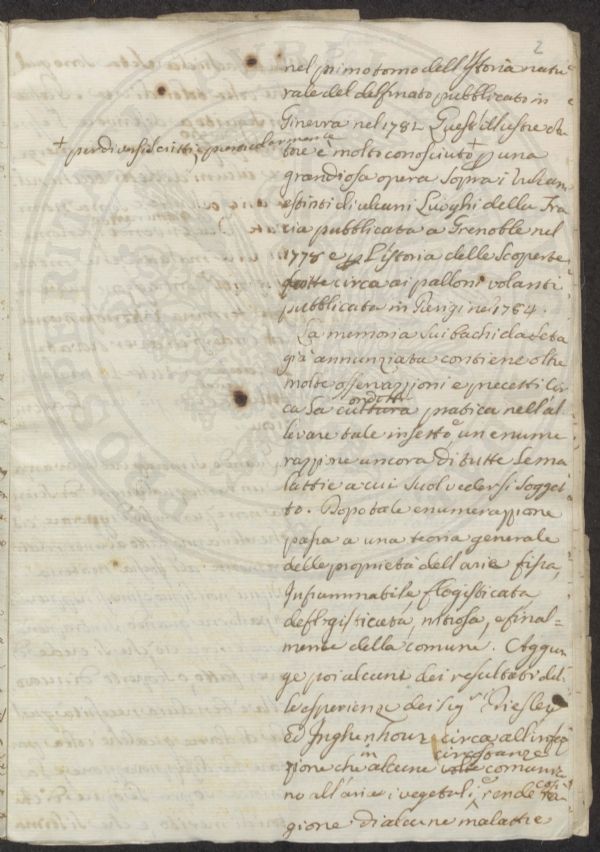 2
nel primo tomo dell'Istoria natu
rale del delfinato pubblicato in
Ginevra nel 1781. Quest'illustre Au
tore è molto conosciuto + p una
+ per diversi scritti, e particolarmente
grandiosa opera sopra i Vulcani
estinti di alcuni Luoghi della Fra
cia pubblicata a Grenoble nel
1778 e p l'Istoria delle Scoperte
fatte circa ai palloni volanti
pubblicata in Parigi nel 1784.
La memoria sui bachi da Seta
già annunziata contiene oltre
molte osservazzioni e precetti cir
ca la condotta pratica nell'al
levare tale insetto, un enume
razzione ancora di tutte le ma
lattie a cui suol vedersi sogget
to. Dopo tale enumerazzione
passa a una teoria generale
delle proprietà dell'arie fissa,
Infiammabile, flogisticata
deflogisticata, nitrosa, e final=
mente della comune. Aggiun
ge poi alcuni dei resultati del
le esperienze dei Sigri Priesley
ed Inghenhouz circa all'infe
zione che in alcune circostanze comunica
no all'aria i vegetali, e rende cosi ra
gione di alcune malattie